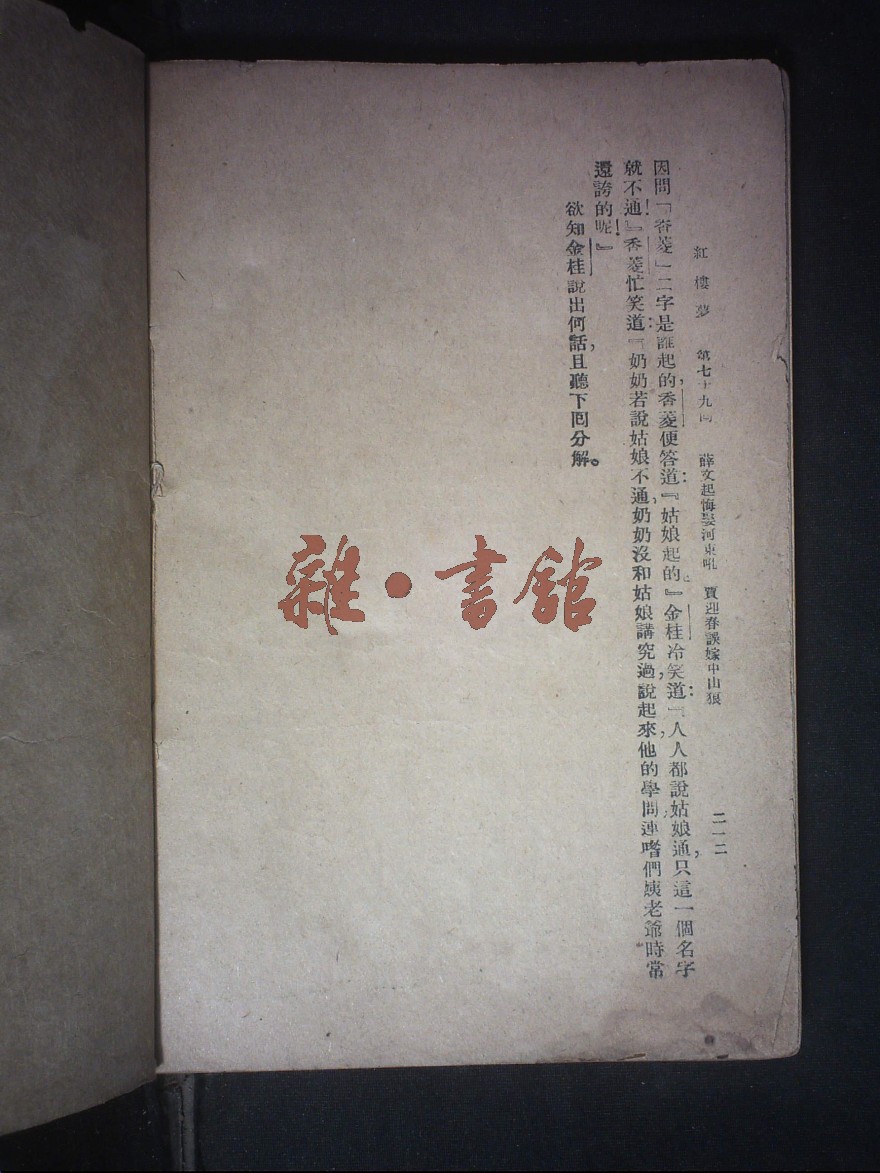 紅樓夢 第七十九回 薛文起悔娶河東吼 賈迎春誤嫁中山狼 二一二
因問『香菱』二字是誰起的，香菱便答道：『姑娘起的。』金桂冷笑道：『人人都說姑娘通，只這一個名字
就不通！』香菱忙笑道：『奶奶若說姑娘不通，奶奶沒和姑娘講究過，說起來，他的學問，連嗜們姨老爺時常
還誇的呢！』
欲知金桂說出何話，且聽下回分解。
雜·書舘